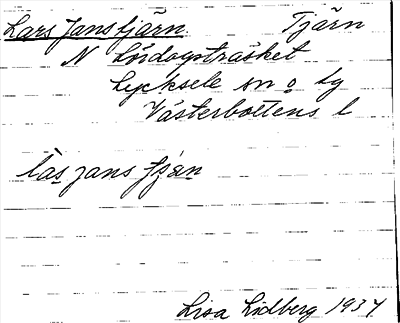 Lars Jans tjärn Tjärn
N Lördagsträsket
Lycksele sn o lg
Västerbottens l
làs jans tjä́n
Lisa Lidberg 1937